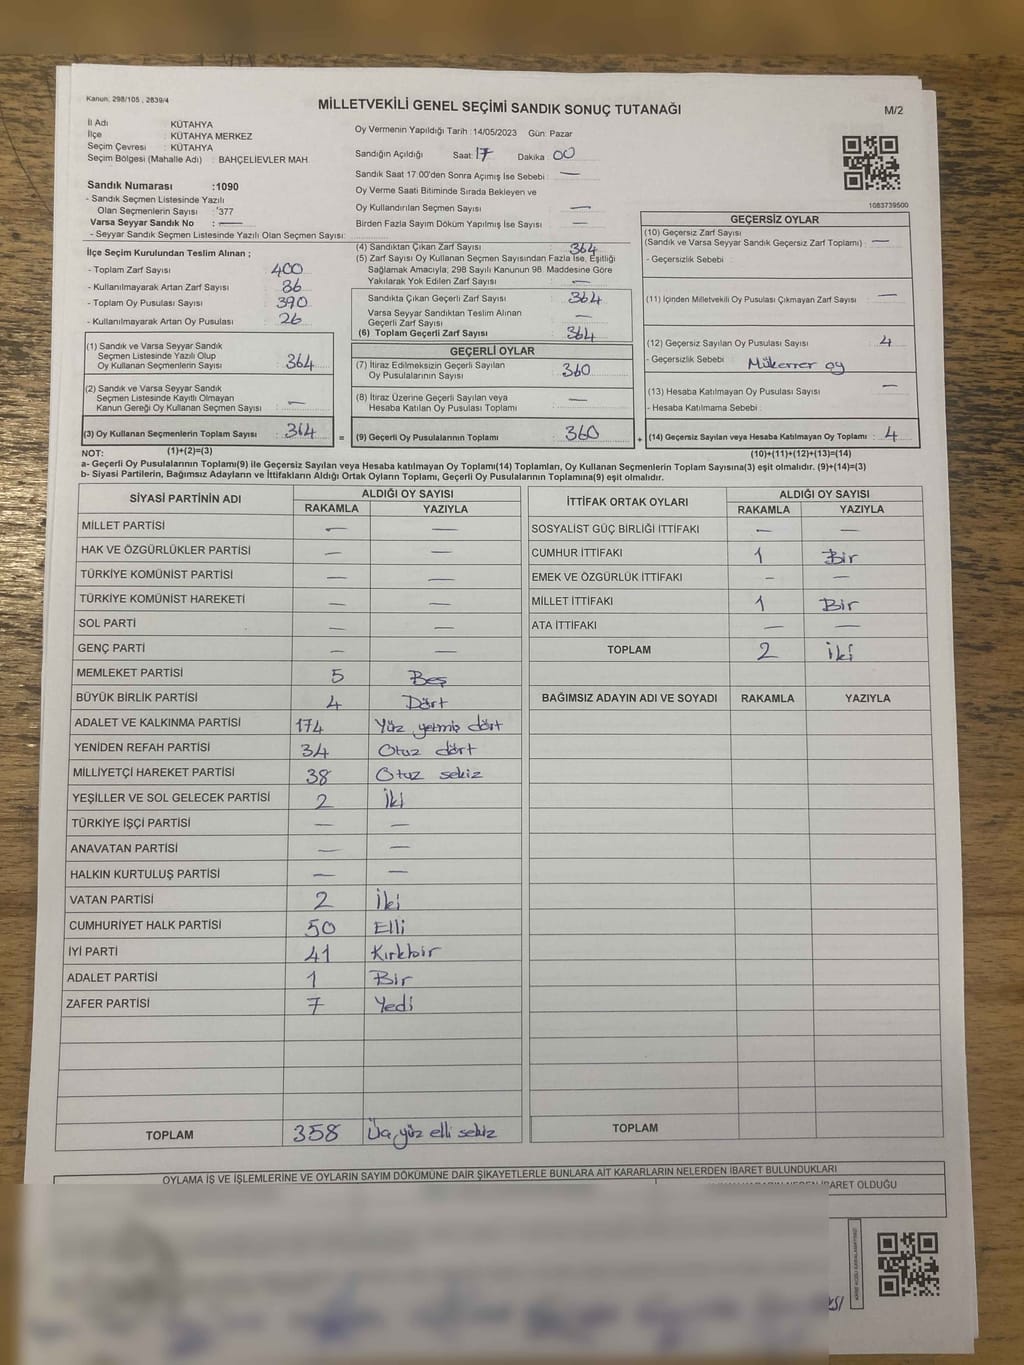 Kanun: 298/105 , 2839/4
MİLLETVEKİLİ GENEL SEÇİMİ SANDIK SONUÇ TUTANAĞI
M/2
İl Adı KÜTAHYA
İlçe : KÜTAHYA MERKEZ
Seçim Çevresi : KÜTAHYA
Seçim Bölgesi (Mahalle Adı) : BAHÇELİEVLER MAH
Oy Vermenin Yapıldığı Tarih :14/05/2023 Gün: Pazar
Sandığın Açıldığı Saat: 17 Dakika: 00
Sandık Saat 17:00'den Sonra Açımış İse Sebebi : —
Oy Verme Saati Bitiminde Sırada Bekleyen ve
Oy Kullandırılan Seçmen Sayısı —
Birden Fazla Sayım Döküm Yapılmış İse Sayısı : —
1083739500
Sandık Numarası :1090
- Sandık Seçmen Listesinde Yazılı
Olan Seçmenlerin Sayısı : '377
Varsa Seyyar Sandık No : —
- Seyyar Sandık Seçmen Listesinde Yazılı Olan Seçmen Sayısı:
İlçe Seçim Kurulundan Teslim Alınan ;
- Toplam Zarf Sayısı 400
- Kullanılmayarak Artan Zarf Sayısı : 86
- Toplam Oy Pusulası Sayısı : 390
- Kullanılmayarak Artan Oy Pusulası : 26
(1) Sandık ve Varsa Seyyar Sandık
Seçmen Listesinde Yazılı Olup
Oy Kullanan Seçmenlerin Sayısı : 364
(2) Sandık ve Varsa Seyyar Sandık
Seçmen Listesinde Kayıtlı Olmayan
Kanun Gereği Oy Kullanan Seçmen Sayısı : —
(3) Oy Kullanan Seçmenlerin Toplam Sayısı : 364
(4) Sandıktan Çıkan Zarf Sayısı : 364
(5) Zarf Sayısı Oy Kullanan Seçmen Sayısından Fazla İse, Eşitliği
Sağlamak Amacıyla; 298 Sayılı Kanunun 98. Maddesine Göre
Yakılarak Yok Edilen Zarf Sayısı : —
Sandıkta Çıkan Geçerli Zarf Sayısı : 364
Varsa Seyyar Sandıktan Teslim Alınan
Geçerli Zarf Sayısı : —
(6) Toplam Geçerli Zarf Sayısı : 364
GEÇERLİ OYLAR
(7) İtiraz Edilmeksizin Geçerli Sayılan
Oy Pusulalarının Sayısı : 360
(8) İtiraz Üzerine Geçerli Sayılan veya
Hesaba Katılan Oy Pusulası Toplamı : —
= (9) Geçerli Oy Pusulalarının Toplamı : 360
GEÇERSİZ OYLAR
(10) Geçersiz Zarf Sayısı
(Sandık ve Varsa Seyyar Sandık Geçersiz Zarf Toplamı) : —
- Geçersizlik Sebebi :
(11) İçinden Milletvekili Oy Pusulası Çıkmayan Zarf Sayısı : —
(12) Geçersiz Sayılan Oy Pusulası Sayısı : 4
- Geçersizlik Sebebi : Mükerrer oy
(13) Hesaba Katılmayan Oy Pusulası Sayısı : —
- Hesaba Katılmama Sebebi :
+ (14) Geçersiz Sayılan veya Hesaba Katılmayan Oy Toplamı : 4
NOT: (1)+(2)=(3)
(10)+(11)+(12)+(13)=(14)
a- Geçerli Oy Pusulalarının Toplamı(9) ile Geçersiz Sayılan veya Hesaba katılmayan Oy Toplamı(14) Toplamları, Oy Kullanan Seçmenlerin Toplam Sayısına(3) eşit olmalıdır. (9)+(14)=(3)
b- Siyasi Partilerin, Bağımsız Adayların ve İttifakların Aldığı Ortak Oyların Toplamı, Geçerli Oy Pusulalarının Toplamına(9) eşit olmalıdır.
SİYASİ PARTİNİN ADI ALDIĞI OY SAYISI
RAKAMLA YAZIYLA
MİLLET PARTİSİ — —
HAK VE ÖZGÜRLÜKLER PARTİSİ — —
TÜRKİYE KOMÜNİST PARTİSİ — —
TÜRKİYE KOMÜNİST HAREKETİ — —
SOL PARTİ — —
GENÇ PARTİ — —
MEMLEKET PARTİSİ 5 Beş
BÜYÜK BİRLİK PARTİSİ 4 Dört
ADALET VE KALKINMA PARTİSİ 174 Yüz yetmiş dört
YENİDEN REFAH PARTİSİ 34 Otuz dört
MİLLİYETÇİ HAREKET PARTİSİ 38 Otuz sekiz
YEŞİLLER VE SOL GELECEK PARTİSİ 2 İki
TÜRKİYE İŞÇİ PARTİSİ — —
ANAVATAN PARTİSİ — —
HALKIN KURTULUŞ PARTİSİ — —
VATAN PARTİSİ 2 İki
CUMHURİYET HALK PARTİSİ 50 Elli
İYİ PARTİ 41 Kırkbir
ADALET PARTİSİ 1 Bir
ZAFER PARTİSİ 7 Yedi
TOPLAM 358 Üç yüz elli sekiz
İTTİFAK ORTAK OYLARI ALDIĞI OY SAYISI
RAKAMLA YAZIYLA
SOSYALİST GÜÇ BİRLİĞİ İTTİFAKI — —
CUMHUR İTTİFAKI 1 Bir
EMEK VE ÖZGÜRLÜK İTTİFAKI — —
MİLLET İTTİFAKI 1 Bir
ATA İTTİFAKI — —
TOPLAM 2 İki
BAĞIMSIZ ADAYIN ADI VE SOYADI RAKAMLA YAZIYLA
TOPLAM
OYLAMA İŞ VE İŞLEMLERİNE VE OYLARIN SAYIM DÖKÜMÜNE DAİR ŞİKAYETLERLE BUNLARA AİT KARARLARIN NELERDEN İBARET BULUNDUKLARI
İBARET OLDUĞU